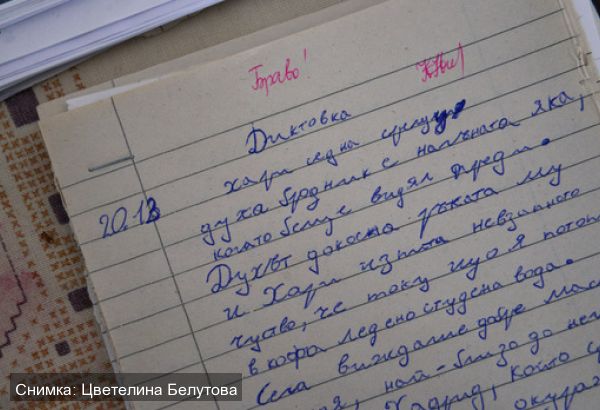 Браво!
Диктовка
20.13
Хари една срещу
духа бродник с наплъната яка,
когато беше видял преди.
Духът докосна ръката му
и Хари изпита невзапното
чувство, че току що я потопи
в кофа ледено студена вода.
Сега виждаше добре мас
най-близо до не
който с
Снимка: Цветелина Белутова